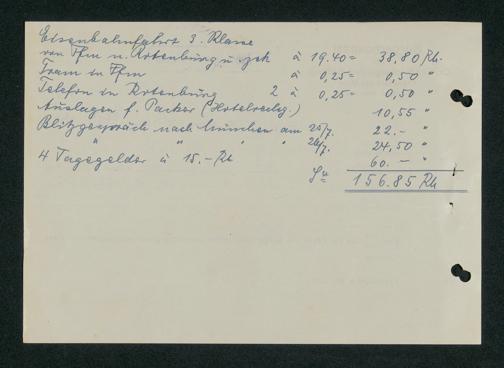 Eisenbahnfahrt 3. Klasse
von Ffm n. Rotenburg u. zck à 19.40 = 38,80 Rk.
Tram in Ffm à 0,25 = 0,50 "
Telefon in Rotenburg 2 à 0,25 = 0,50 "
Auslagen f. Packer (Hotelrechg.) 10,55 "
Blitzgespräch nach München am 25/7. 22.- "
" " " " 26/7. 24,50 "
4 Tagegelder à 15.- Rk 60.- "
156.85 Rk